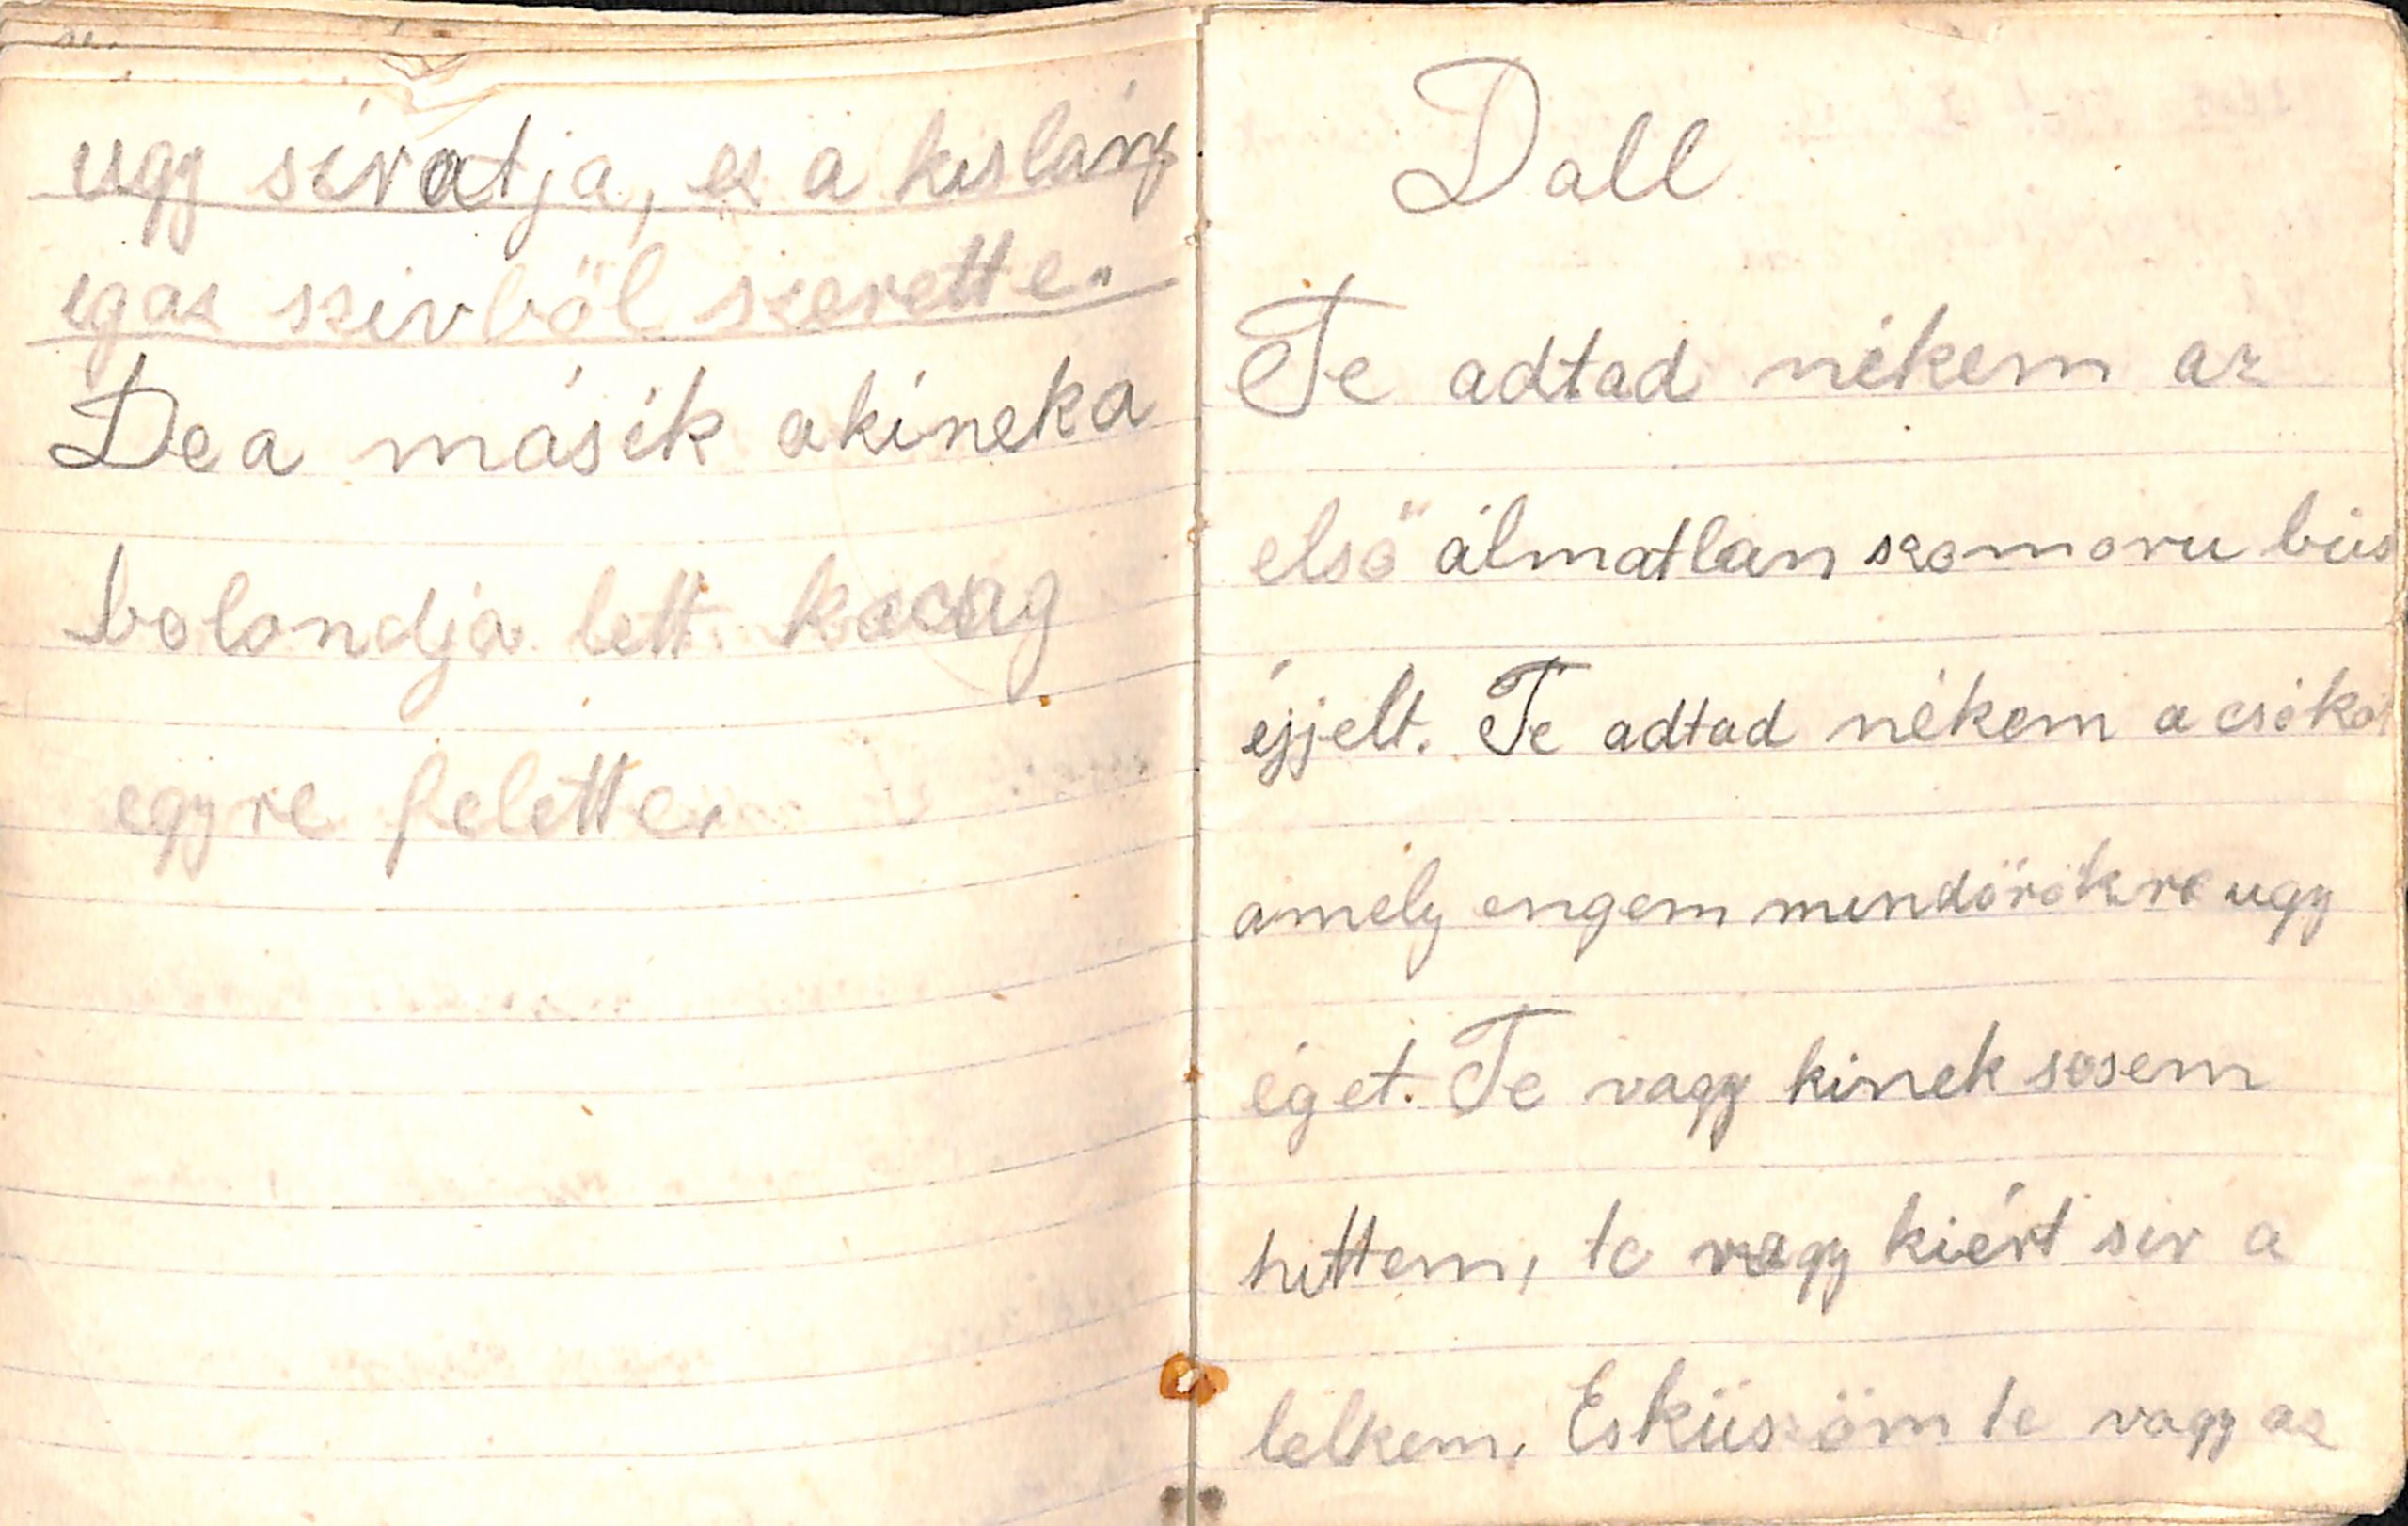 ugy siratja, ez a kislány
igaz szivböl szerette.
De a másik akinek a
bolondja lett kacag
egyre felette.
Dall
Te adtad nékem az
első álmatlan szomoru bús
éjjelt. Te adtad nékem a csókot
amely engem mindörökre ugy
éget. Te vagy kinek sosem
hittem, te vagy kiért sir a
lelkem, Esküszöm te vagy az